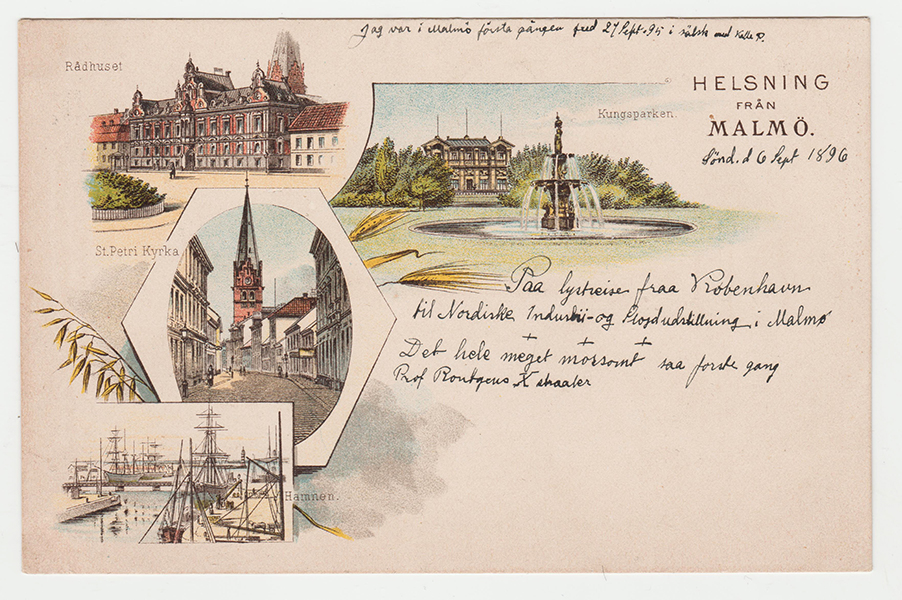 Jag var i Malmö första gången den 27 Sept. 95 i sälsk med Kalle P.
Rådhuset
HELSNING
FRÅN
MALMÖ.
Kungsparken.
Sönd. d 6 Sept 1896
St. Petri Kyrka
Paa lystreise fraa Köbenhavn
til Nordiske Industri-og Slojdudstillning i Malmö
+ + +
Det hele meget morsomt saa forste gang
Prof Rontgens X straaler
Hamnen.